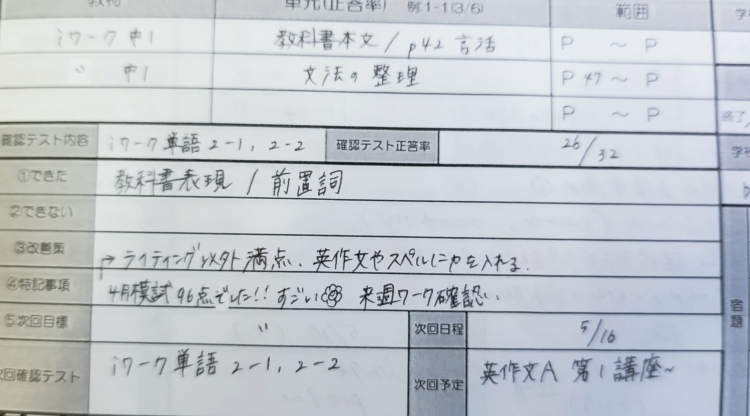 教材 単元(正答率) 例:1-1(3/6) 範囲
iワーク 中1 教科書本文 / P42 言活 P ～ P
〃 中1 文法の整理 P 47 ～ P
P ～ P
確認テスト内容 iワーク 単語 2-1, 2-2 確認テスト正答率 26/32
①できた 教科書表現 / 前置詞
②できない
③改善策 → ライティング以外 満点、英作文やスペルに力を入れる.
④特記事項 4月模試 96点でした!! すごい 来週ワーク確認.
⑤次回目標 〃 次回日程 5/16
次回確認テスト iワーク 単語 2-1, 2-2 次回予定 英作文A 第1講座～
宿題